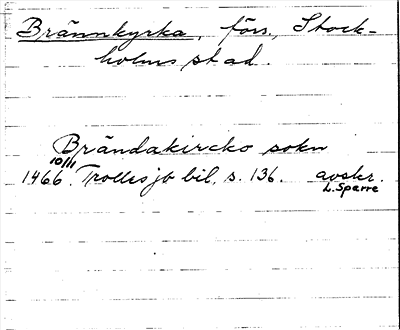 Brännkyrka, förs., Stock-
holms stad.
Brändakircko sokn
10/11
1466. Trolles jb bil. s. 136. avskr.
L. Sparre